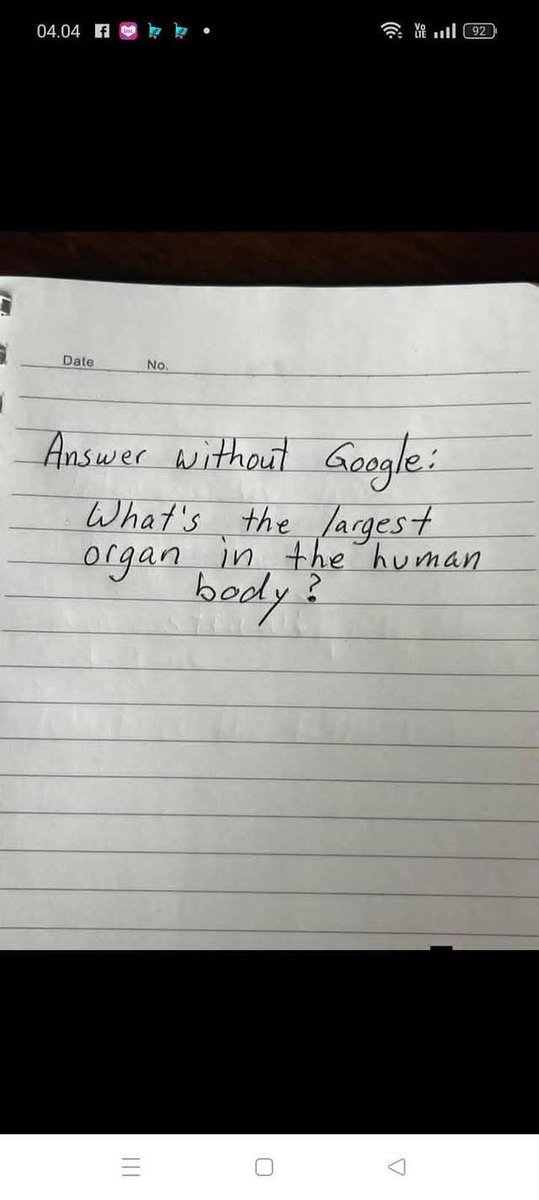 04.04
Vo
LTE
92
Date No.
Answer without Google:
What's the largest
organ in the human
body?